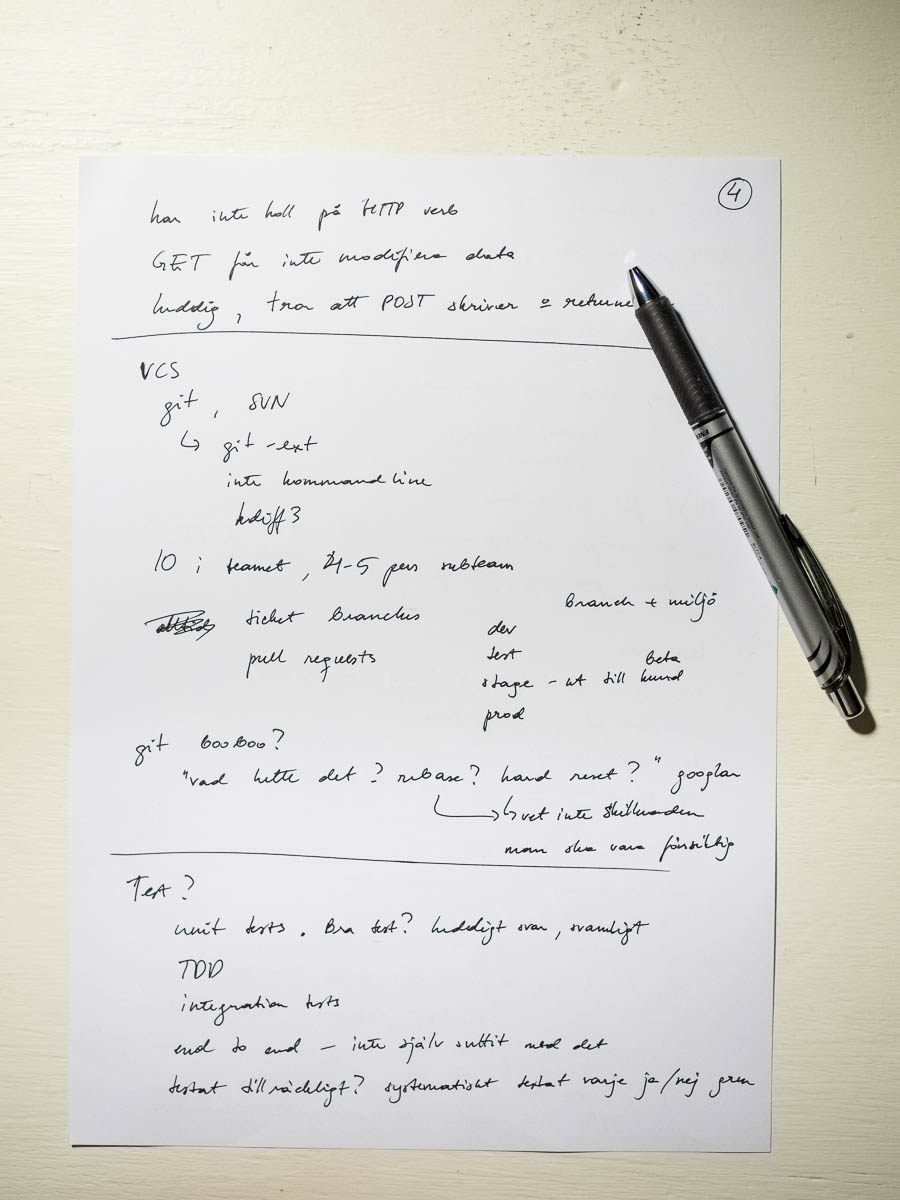 4
har inte koll på HTTP verb
GET får inte modifiera data
luddig, tror att POST skriver o returne
VCS
git, SVN
↳ git-ext
inte kommandline
kdiff3
10 i teamet, 4-5 pers subteam
ticket branches
pull requests
branch + miljö
dev
test
beta
stage - ut till kund
prod
git booboo?
"vad hette det? rebase? hard reset?" googlar
↳ vet inte skillnaden
man ska vara försiktig
Test?
unit tests. Bra test? luddigt svar, svamligt
TDD
integration tests
end to end - inte själv suttit med det
testat tillräckligt? systematiskt testat varje ja/nej gren